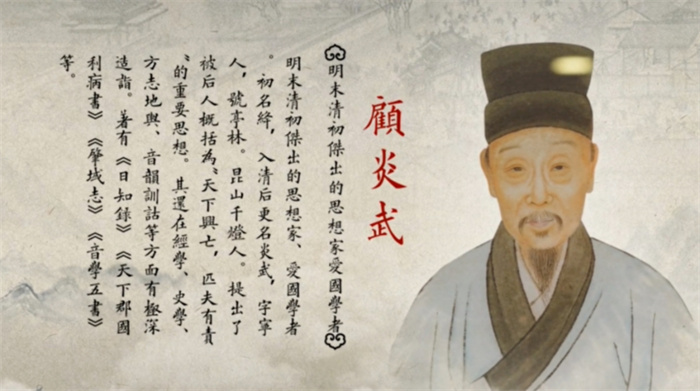 顧炎武
明末清初傑出的思想家愛國學者
明末清初傑出的思想家、愛國學者
。初名絳，入清后更名炎武，字寧
人，號亭林。昆山千燈人。提出了
被后人概括為“天下興亡，匹夫有責
”的重要思想。其還在經學、史學、
方志地輿、音韻訓詁等方面有極深
造詣。著有《日知錄》《天下郡國
利病書》《肇域志》《音學五書》
等。